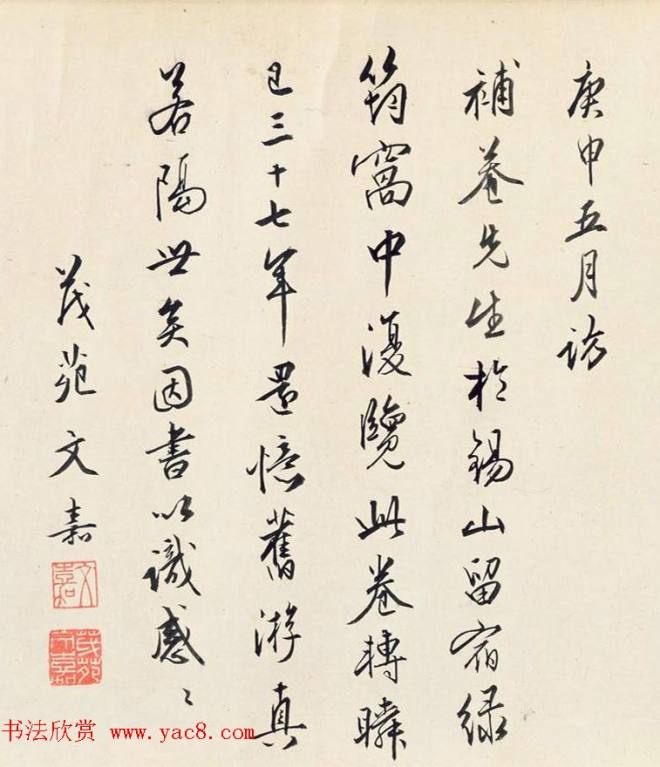 庚申五月訪
補菴先生於錫山留宿緑
筠窩中復覽此卷轉瞬
已三十七年還憶舊游真
若隔世矣因書以識感〻
茂苑文嘉
文嘉
茂苑文嘉
书法欣赏 www.yac8.com